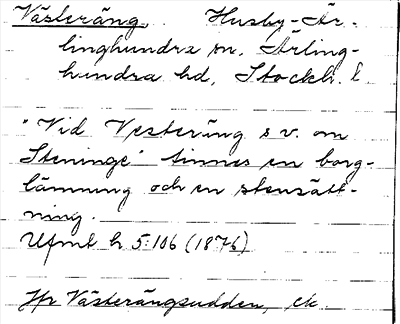 Västeräng. Husby-Är-
linghundra sn, Ärling-
hundra hd, Stockh. l.
"Vid Vesteräng s v. om
Steninge" finnes en borg-
lämning och en stensätt-
ning.
Ufmt h 5:106 (1876)
Jfr Västerängsudden, ek.